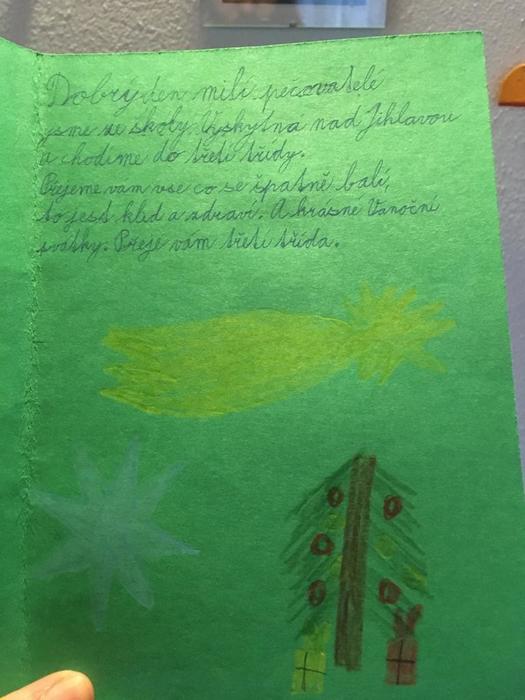 Dobrý den milí pečovatelé
jsme ze školy Vyskytna nad Jihlavou
a chodíme do třetí třídy.
Přejeme vám vše co se špatně balí,
to jest klid a zdraví. A krásné Vánoční
svátky. Přeje vám třetí třída.